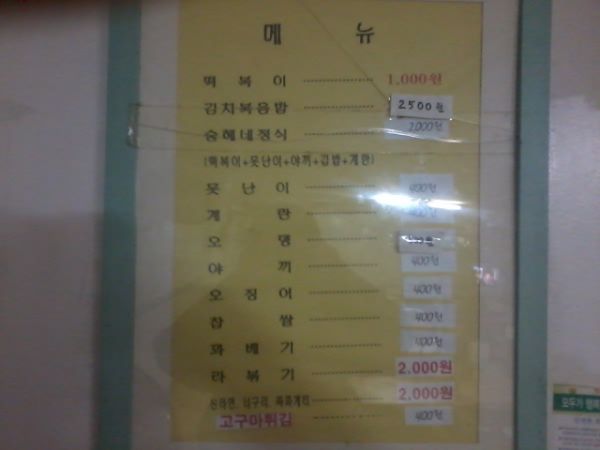 메 뉴
떡 복 이 1,000원
김치복음밥 2500원
숭헤네정식 2000원
(떡복이+못난이+야끼+김밥+계란)
못 난 이 400원
계 란 400원
오 뎅
야 끼 400원
오 징 어 400원
찹 쌀 400원
꽈 베 기 400원
라 볶 기 2,000원
신라면, 너구리, 짜파게티 2,000원
고구마튀김 400원
모두가 행복